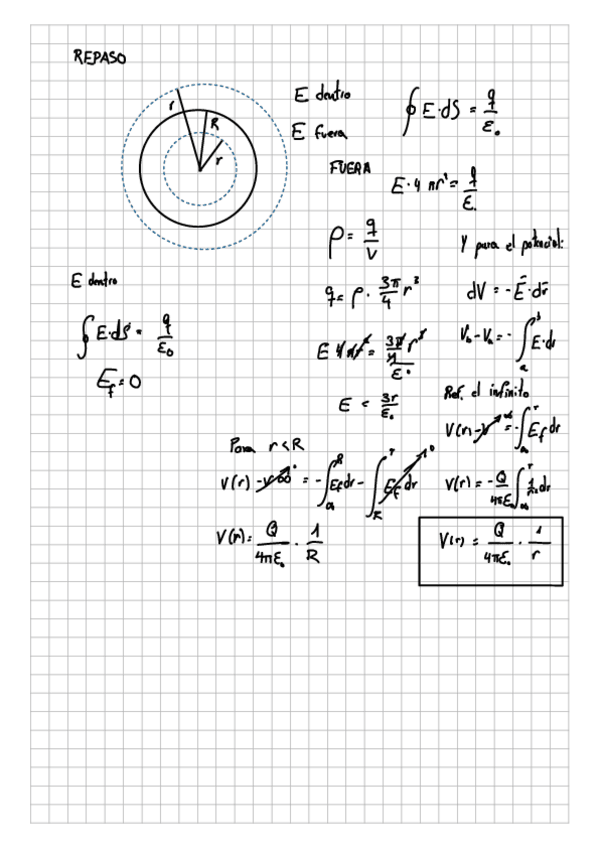 REPASO
r
R
r
E dentro
E fuera
∮ E·dS = q/ε₀
FUERA
E·4πr² = q/ε₀
ρ = q/V
Y para el potencial:
E dentro
q = ρ · 3π/4 r³
dV = -Ē·dr̄
∮ E·dS = q/ε₀
E 4πr² = 3π/4 r³/ε₀
V_b - V_a = -∫_a^b E·dr
E_f = 0
E = 3r/ε₀
Ref. el infinito
V(r) - V^∞ = -∫_∞^r E_f dr
Para r<R
V(r) - V∞^0 = -∫_∞^R E_f dr - ∫_R^r E_f dr^0
V(r) = -Q/4πε₀ ∫_∞^r 1/r² dr
V(r) = Q/4πε₀ · 1/R
V(r) = Q/4πε₀ · 1/r